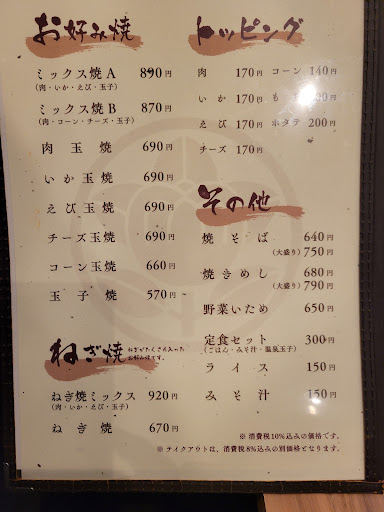 お好み焼
ミックス焼A 890円
(肉・いか・えび・玉子)
ミックス焼B 870円
(肉・コーン・チーズ・玉子)
肉玉焼 690円
いか玉焼 690円
えび玉焼 690円
チーズ玉焼 690円
コーン玉焼 660円
玉子焼 570円
ねぎ焼
ねぎがたくさん入った
お好み焼です。
ねぎ焼ミックス 920円
(肉・いか・えび・玉子)
ねぎ焼 670円
トッピング
肉 170円 コーン 140円
いか 170円 も 00円
えび 170円 ホタテ 200円
チーズ 170円
その他
焼そば 640円
(大盛り) 750円
焼きめし 680円
(大盛り) 790円
野菜いため 650円
定食セット 300円
(ごはん・みそ汁・温泉玉子)
ライス 150円
みそ汁 150円
※消費税10%込みの価格です。
※テイクアウトは、消費税8%込みの別価格となります。